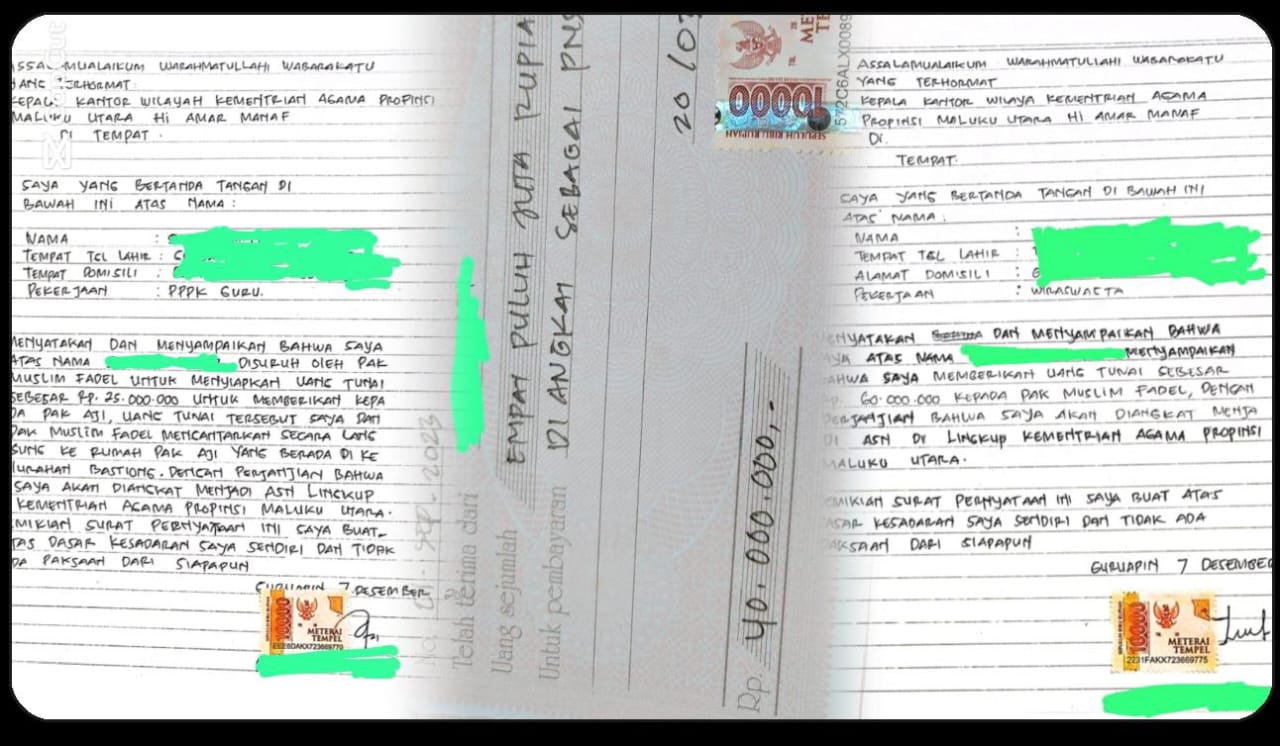 ASSALAMUALAIKUM WARAHMATULLAHI WABARAKATU
YANG TERHORMAT
KEPALA KANTOR WILAYAH KEMENTRIAN AGAMA PROPINSI
MALUKU UTARA HI AMAR MANAF
DI TEMPAT.
SAYA YANG BERTANDA TANGAN DI
BAWAH INI ATAS NAMA:
NAMA :
TEMPAT TGL LAHIR :
TEMPAT DOMISILI :
PEKERJAAN : PPPK GURU.
MENYATAKAN DAN MENYAMPAIKAN BAHWA SAYA
ATAS NAMA DISURUH OLEH PAK
MUSLIM FADEL UNTUK MENYIAPKAN UANG TUNAI
SEBESAR RP. 25.000.000 UNTUK MEMBERIKAN KEPA
DA PAK AJI, UANG TUNAI TERSEBUT SAYA DAN
PAK MUSLIM FADEL MENGANTARKAN SECARA LANG
SUNG KE RUMAH PAK AJI YANG BERADA DI KE
LURAHAN BASTIONG. DENGAN PERJANJIAN BAHWA
SAYA AKAN DIANGKAT MENJADI ASN LINGKUP
KEMENTRIAN AGAMA PROPINSI MALUKU UTARA.
MIKIAN SURAT PERNYATAAN INI SAYA BUAT
TAS DASAR KESADARAN SAYA SENDIRI DAN TIDAK
DA PAKSAAN DARI SIAPAPUN
GURUAPIN 7 DESEMBER
10000
METERAI
TEMPEL
No. SEP - 2023
Telah terima dari
Uang sejumlah EMPAT PULUH JUTA RUPIA
Untuk pembayaran DI ANGKAT SEBAGAI PNS
20/03
Rp. 40.000.000,-
10000
SEPULUH RIBU RUPIAH
572C6ALX0089
ASSALAMUALAIKUM WARAHMATULLAHI WABARAKATU
YANG TERHORMAT
KEPALA KANTOR WILAYA KEMENTRIAN AGAMA
PROPINSI MALUKU UTARA HI AMAR MANAF
DI.
TEMPAT.
SAYA YANG BERTANDA TANGAN DI BAWAH INI
ATAS NAMA:
NAMA :
TEMPAT TGL LAHIR :
ALAMAT DOMISILI :
PEKERJAAN : WIRASWASTA
ENYATAKAN DAN MENYAMPAIKAN BAHWA
YA ATAS NAMA MENYAMPAIKAN
AHWA SAYA MEMBERIKAN UANG TUNAI SEBESAR
P. 60.000.000 KEPADA PAK MUSLIM FADEL, DENGAN
PERJANJIAN BAHWA SAYA AKAN DIANGKAT MENJA
DI ASN DI LINGKUP KEMENTRIAN AGAMA PROPINSI
MALUKU UTARA.
EMIKIAN SURAT PERNYATAAN INI SAYA BUAT ATAS
ASAR KESADARAN SAYA SENDIRI DAN TIDAK ADA
AKSAAN DARI SIAPAPUN
GURUAPIN 7 DESEMBER
10000
METERAI
TEMPEL
2231FAKX723669775